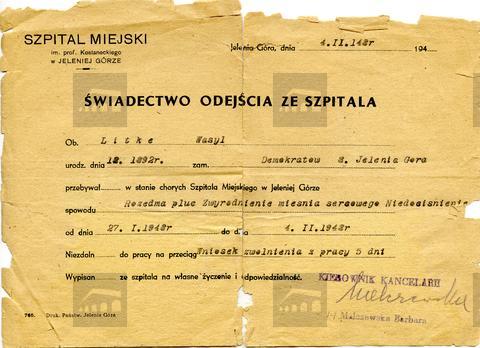 SZPITAL MIEJSKI
im. prof. Kostaneckiego
w JELENIEJ GÓRZE
Jelenia-Góra, dnia 4.II.148r 194
ŚWIADECTWO ODEJŚCIA ZE SZPITALA
Ob. Litke Wasyl
urodz. dnia 12. 1892r. zam. Demokratow 3. Jelenia Gora
przebywał w stanie chorych Szpitala Miejskiego w Jeleniej Górze
spowodu Rozedma pluc Zwyrodnienie miesnia sercowego
od dnia 27. I.1948r do dnia 4. II.1948r
Niezdoln do pracy na przeciąg Wniosek zwolnienia z pracy 5 dni
Wypisan ze szpitala na własne życzenie i odpowiedzialność.
KIEROWNIK KANCELARII
Malczewska Barbara
765. Druk. Państw. Jelenia Góra